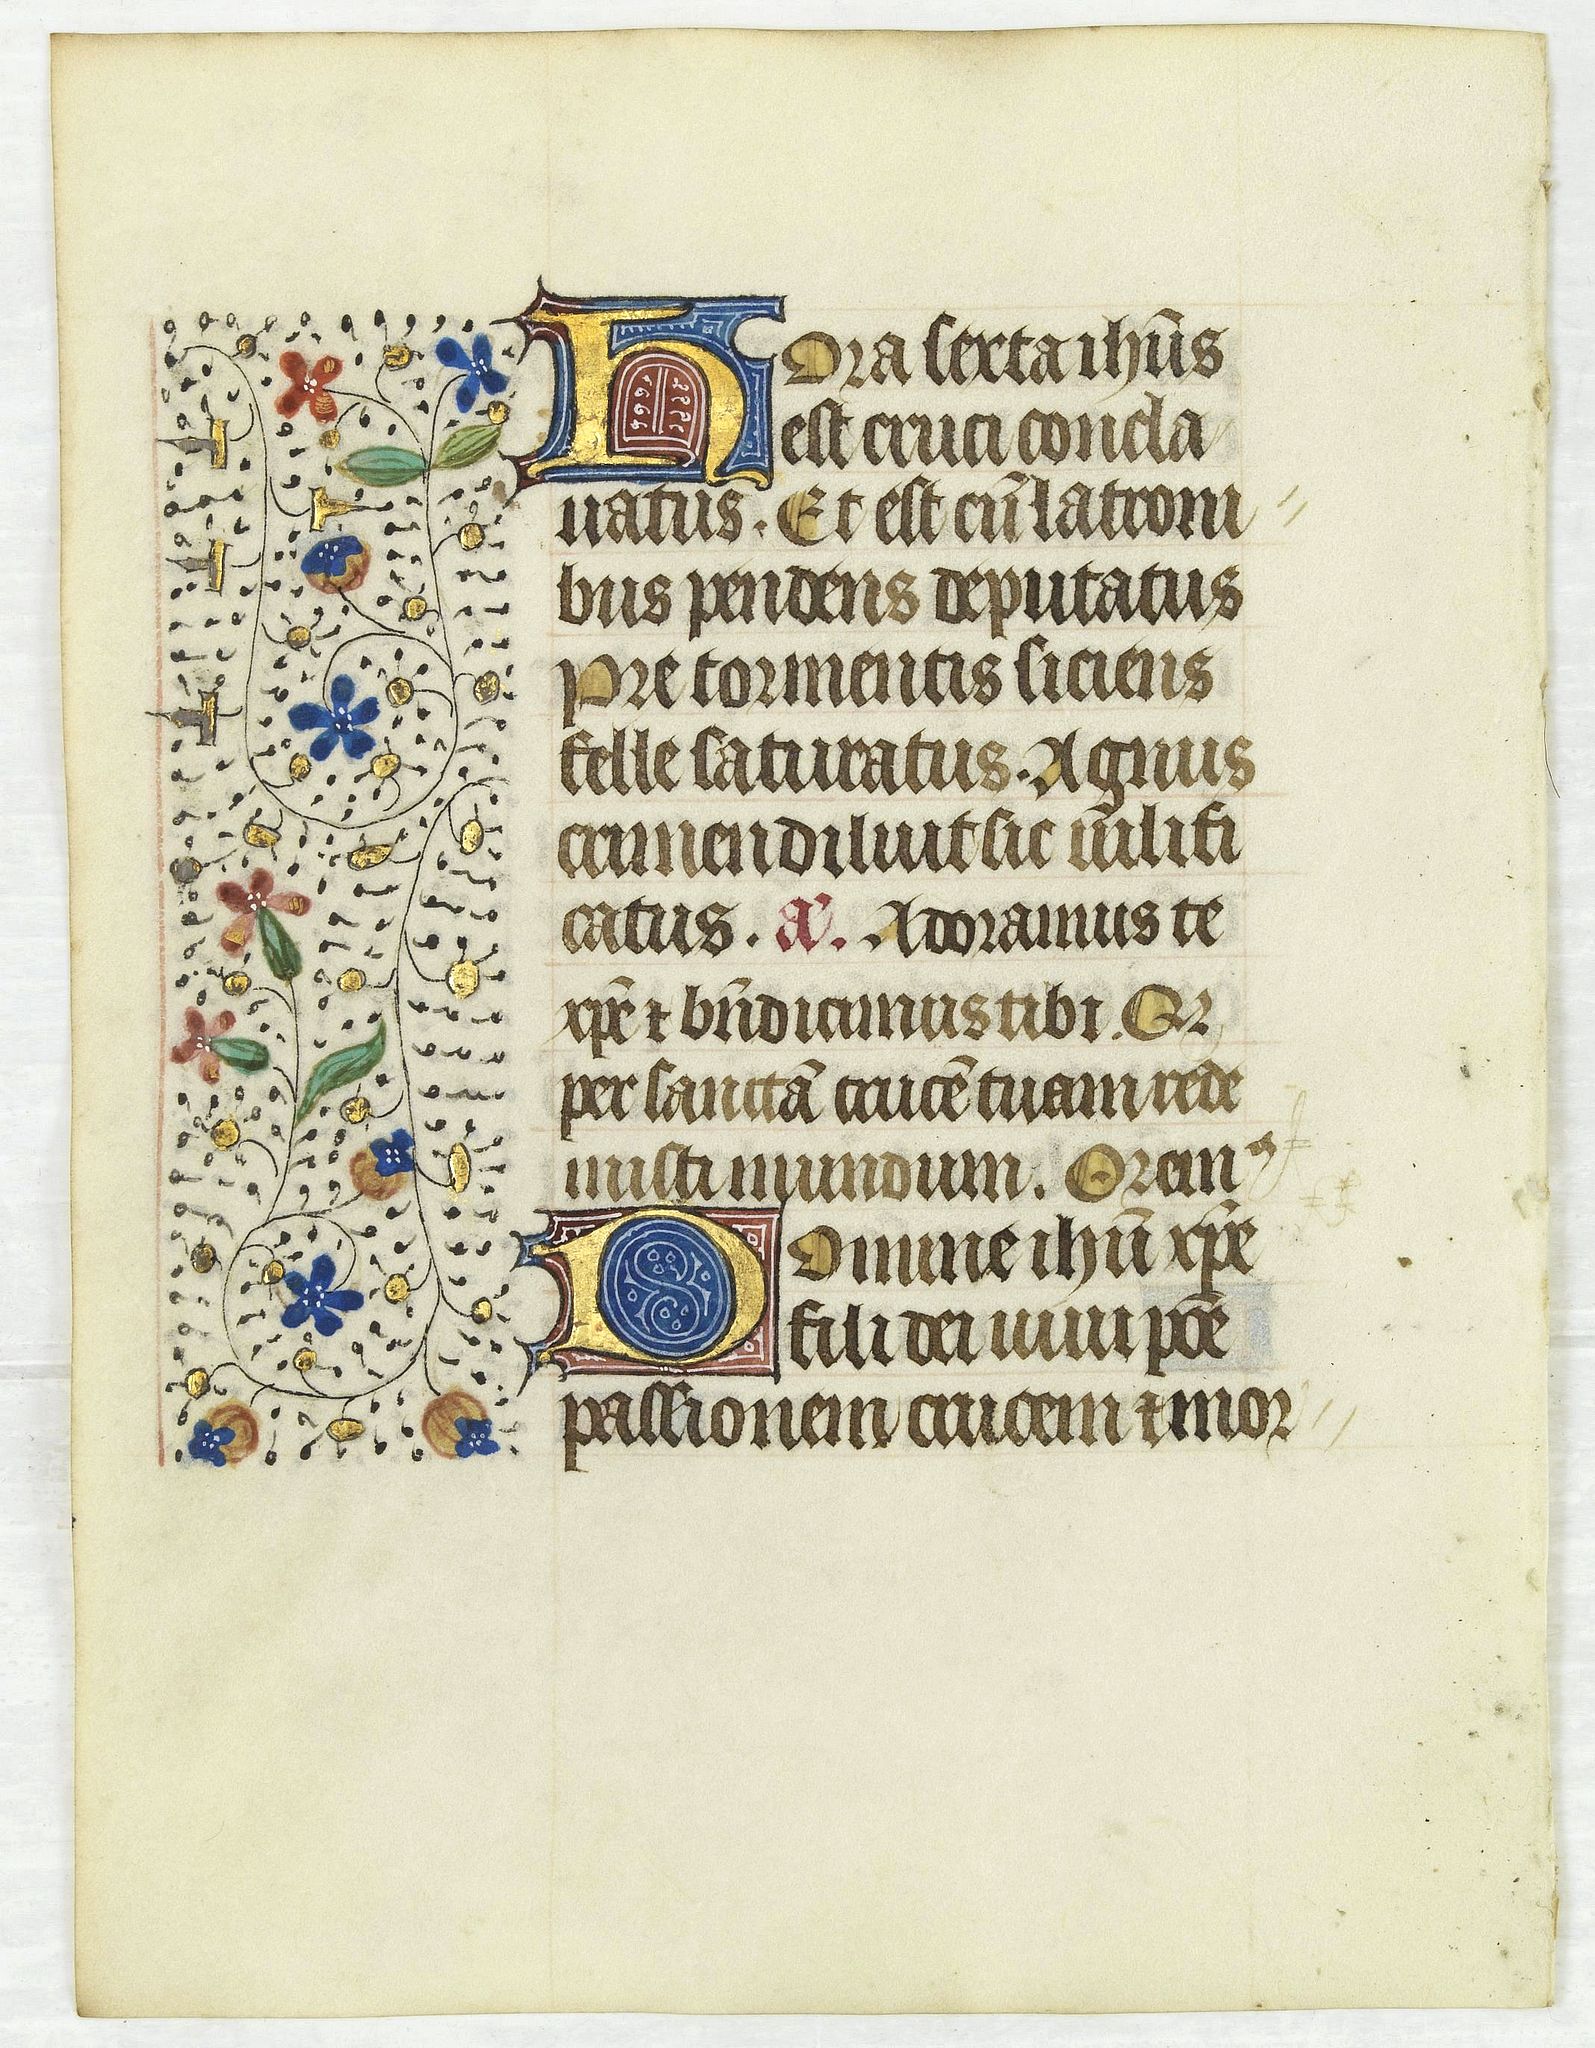 Hora sexta ihūs
est cruci concla
uatus. Et est cū latroni
bus pendens deputatus
Pre tormentis siciens
felle saturatus. Agnus
crimen diluit sic uīlifi
catus. a. Adoramus te
xp̄e ⁊ bn̄dicimus tibi. Qr
per sanctā crucē tuam rede
misti mundum. Oremꝰ
Domine ihū xp̄e
fili dei uiui pōe
passionem crucem ⁊ mor